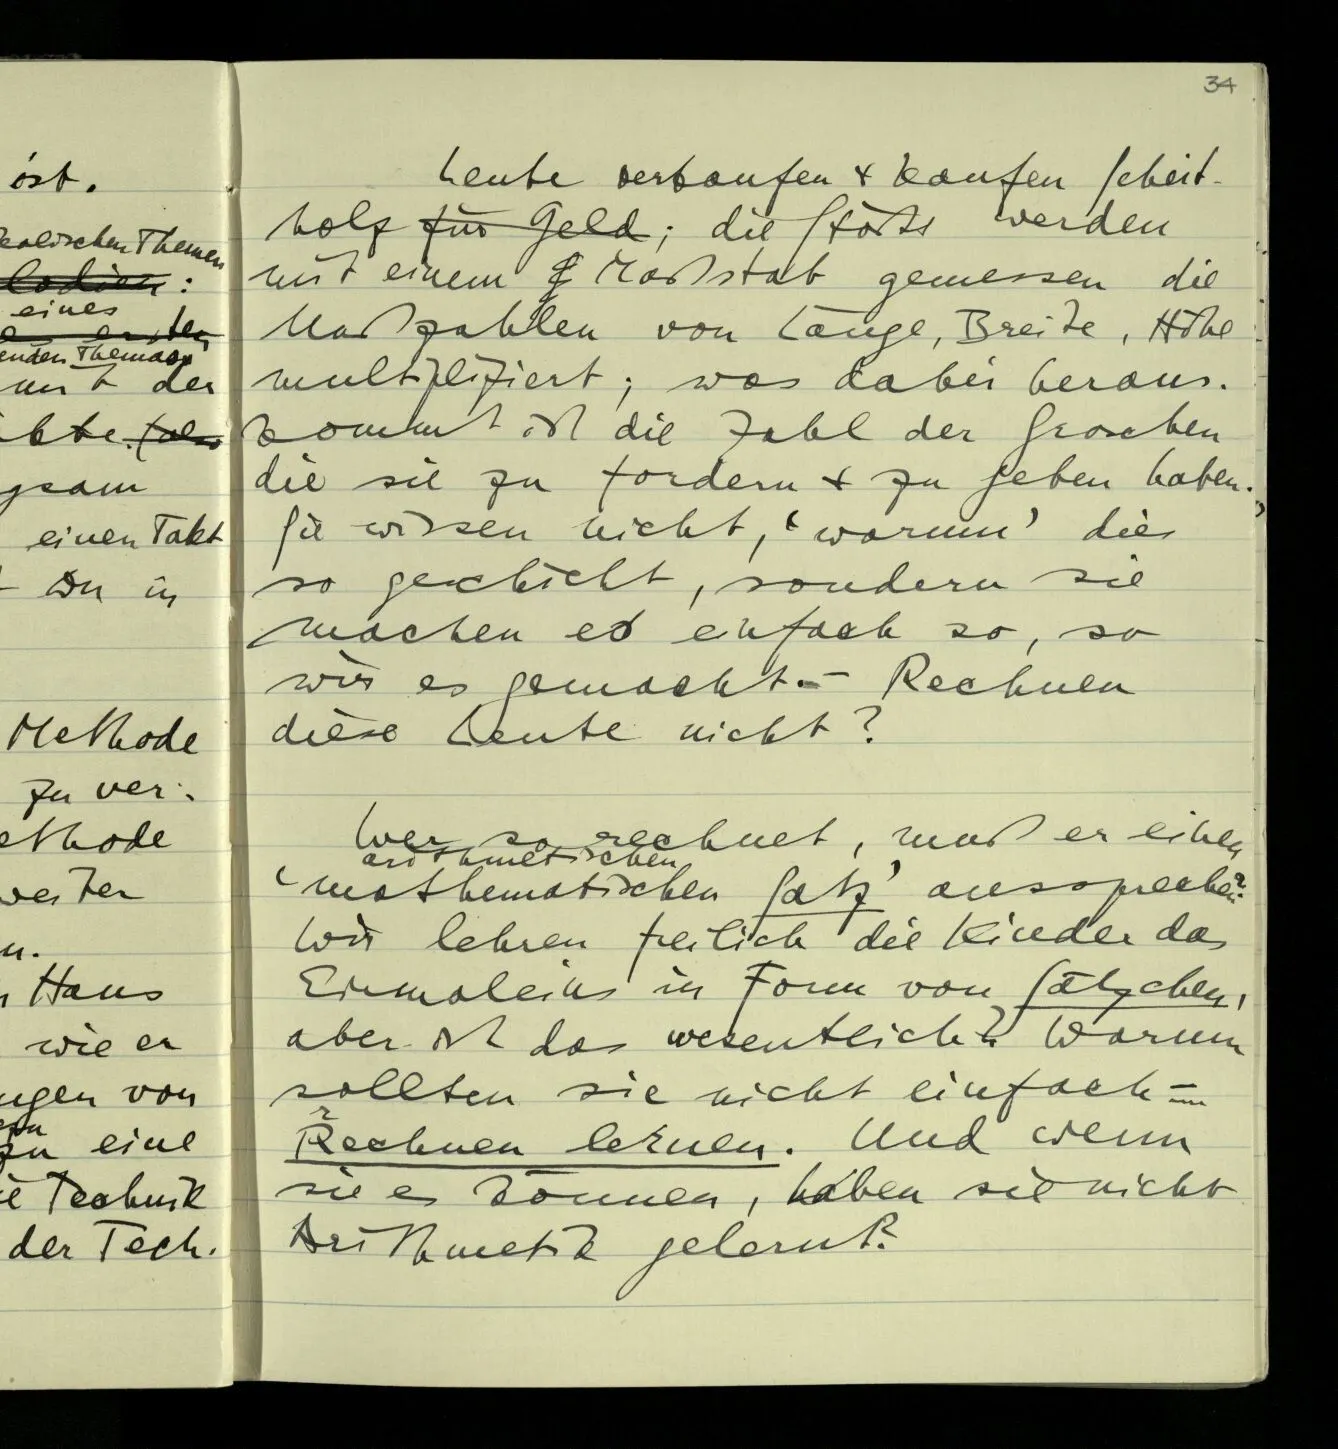 34
ist.
kalischen Themen
:
eines
enden Themas
mit der
gsam
einen Takt
in
Methode
zu ver-
ethode
weiter
n.
Haus
wie er
ngen von
zu eine
ie Technik
der Tech-
Leute verkaufen & kaufen Scheit-
holz für Geld; die Stöße werden
mit einem Maßstab gemessen die
Maßzahlen von Länge, Breite, Höhe
multipliziert; was dabei heraus-
kommt ist die Zahl der Groschen
die sie zu fordern & zu geben haben.
Sie wissen nicht, ‘warum’ dies
so geschieht, sondern sie
machen es einfach so, so
wird es gemacht.– Rechnen
diese Leute nicht?
Wer so rechnet, muß er einen
arithmetischen
‘mathematischen Satz’ aussprechen?
Wir lehren freilich die Kinder das
Einmaleins in Form von Sätzchen,
aber ist das wesentlich? Warum
sollten sie nicht einfach –
Rechnen lernen. Und wenn
sie es können, haben sie nicht
Arithmetik gelernt?